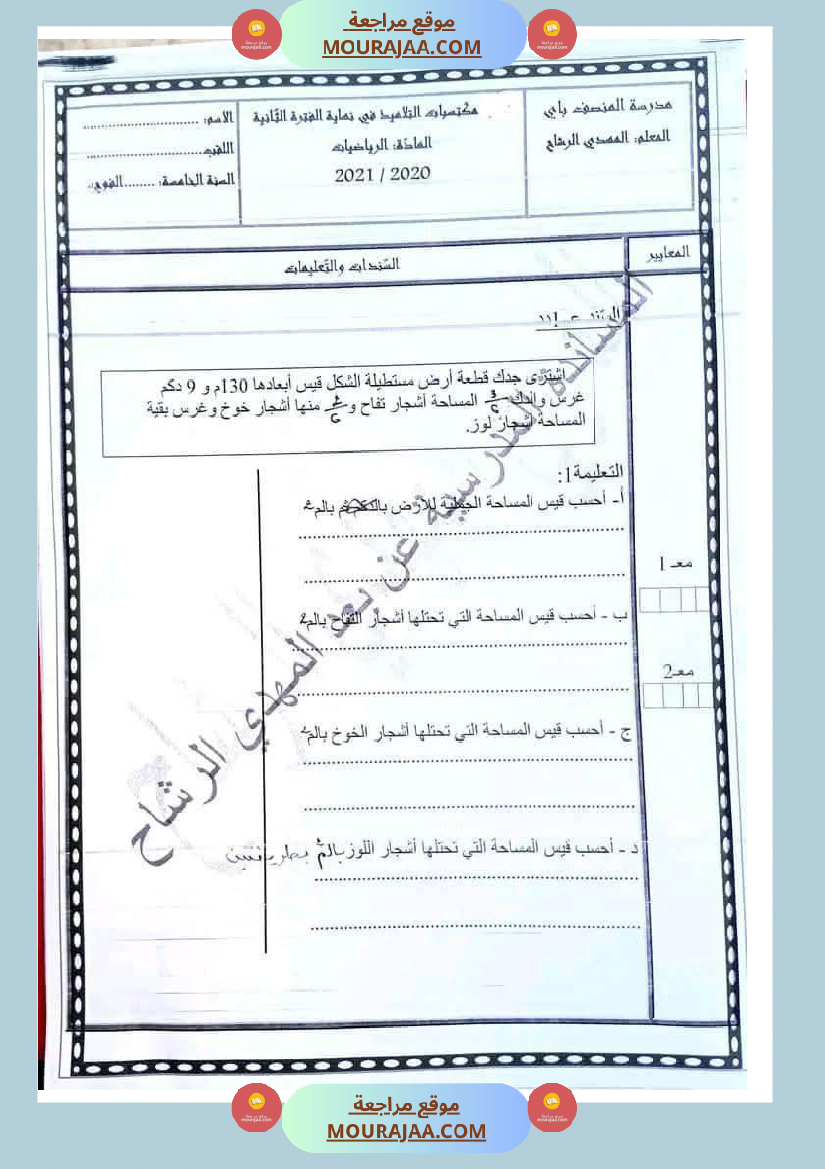 موقع مراجعة
MOURAJAA.COM
مدرسة المنصف باي
المعلم: المهدي الرشاح
مكتسبات التلاميذ في نهاية الفترة الثانية
المادة: الرياضيات
2021 / 2020
الاسم: ..............................
اللقب..............................
السنة الخامسة: ........الفوج:..
المعايير
السندات والتعليمات
اشترى جدك قطعة أرض مستطيلة الشكل قيس أبعادها 130م و 9 دكم
غرس والدك المساحة أشجار تفاح و منها أشجار خوخ وغرس بقية
المساحة أشجار لوز.
التعليمة1:
أ- أحسب قيس المساحة الجملية للأرض ثم بالم²
ب - أحسب قيس المساحة التي تحتلها أشجار التفاح بالم²
ج - أحسب قيس المساحة التي تحتلها أشجار الخوخ بالم²
د - أحسب قيس المساحة التي تحتلها أشجار اللوز بالم² بطريقتين
معـ 1
معـ2
المساندة المدرسية عن بعد المهدي الرشاح
موقع مراجعة
MOURAJAA.COM